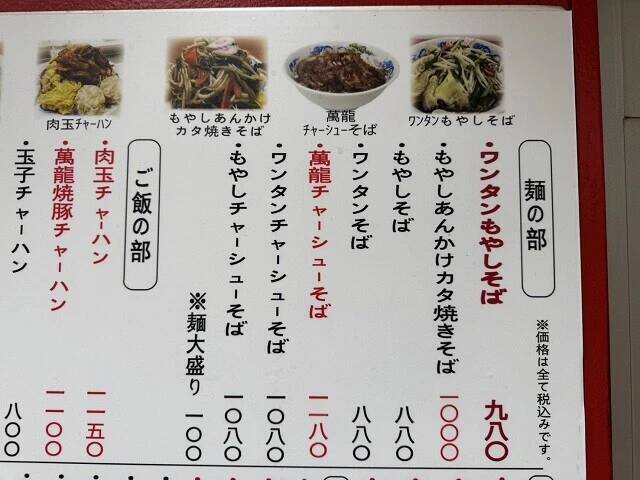 肉玉チャーハン
もやしあんかけ
カタ焼きそば
萬龍
チャーシューそば
ワンタンもやしそば
麺の部
※価格は全て税込みです。
・ワンタンもやしそば 九八〇
・もやしあんかけカタ焼きそば 一〇〇〇
・もやしそば 八八〇
・ワンタンそば 八八〇
・萬龍チャーシューそば 一一八〇
・ワンタンチャーシューそば 一〇八〇
・もやしチャーシューそば 一〇八〇
※麺大盛り 一〇〇
ご飯の部
・肉玉チャーハン 一一五〇
・萬龍焼豚チャーハン 一一〇〇
・玉子チャーハン 八〇〇